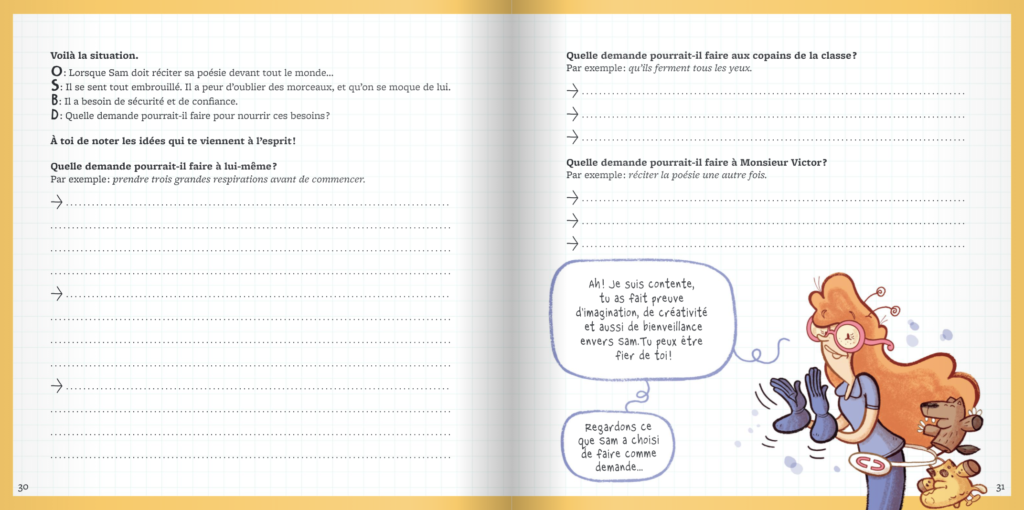 Voilà la situation.
O : Lorsque Sam doit réciter sa poésie devant tout le monde…
S : Il se sent tout embrouillé. Il a peur d'oublier des morceaux, et qu'on se moque de lui.
B : Il a besoin de sécurité et de confiance.
D : Quelle demande pourrait-il faire pour nourrir ces besoins ?
À toi de noter les idées qui te viennent à l'esprit !
Quelle demande pourrait-il faire à lui-même ?
Par exemple : prendre trois grandes respirations avant de commencer.
30
Quelle demande pourrait-il faire aux copains de la classe ?
Par exemple : qu'ils ferment tous les yeux.
Quelle demande pourrait-il faire à Monsieur Victor ?
Par exemple : réciter la poésie une autre fois.
Ah! Je suis contente,
tu as fait preuve
d'imagination, de créativité
et aussi de bienveillance
envers Sam.Tu peux être
fier de toi!
Regardons ce
que Sam a choisi
de faire comme
demande...
31